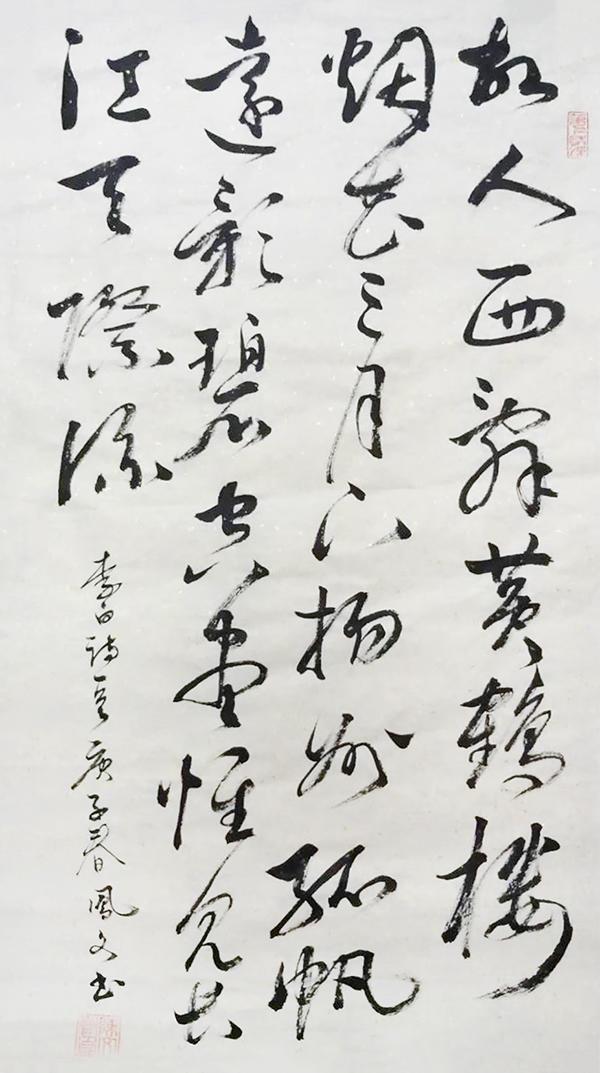 故人西辭黄鶴樓
烟花三月下揚州孤帆
遠影碧空盡惟見長
江天際流
李白詩一首庚子春鳳文書